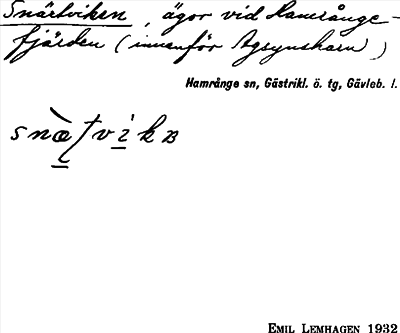 Snärtviken, ägor vid Hamrånge-
fjärden (innanför Ågsynskarn)
Hamrånge sn, Gästrikl. ö. tg, Gävleb. l.
EMIL LEMHAGEN 1932